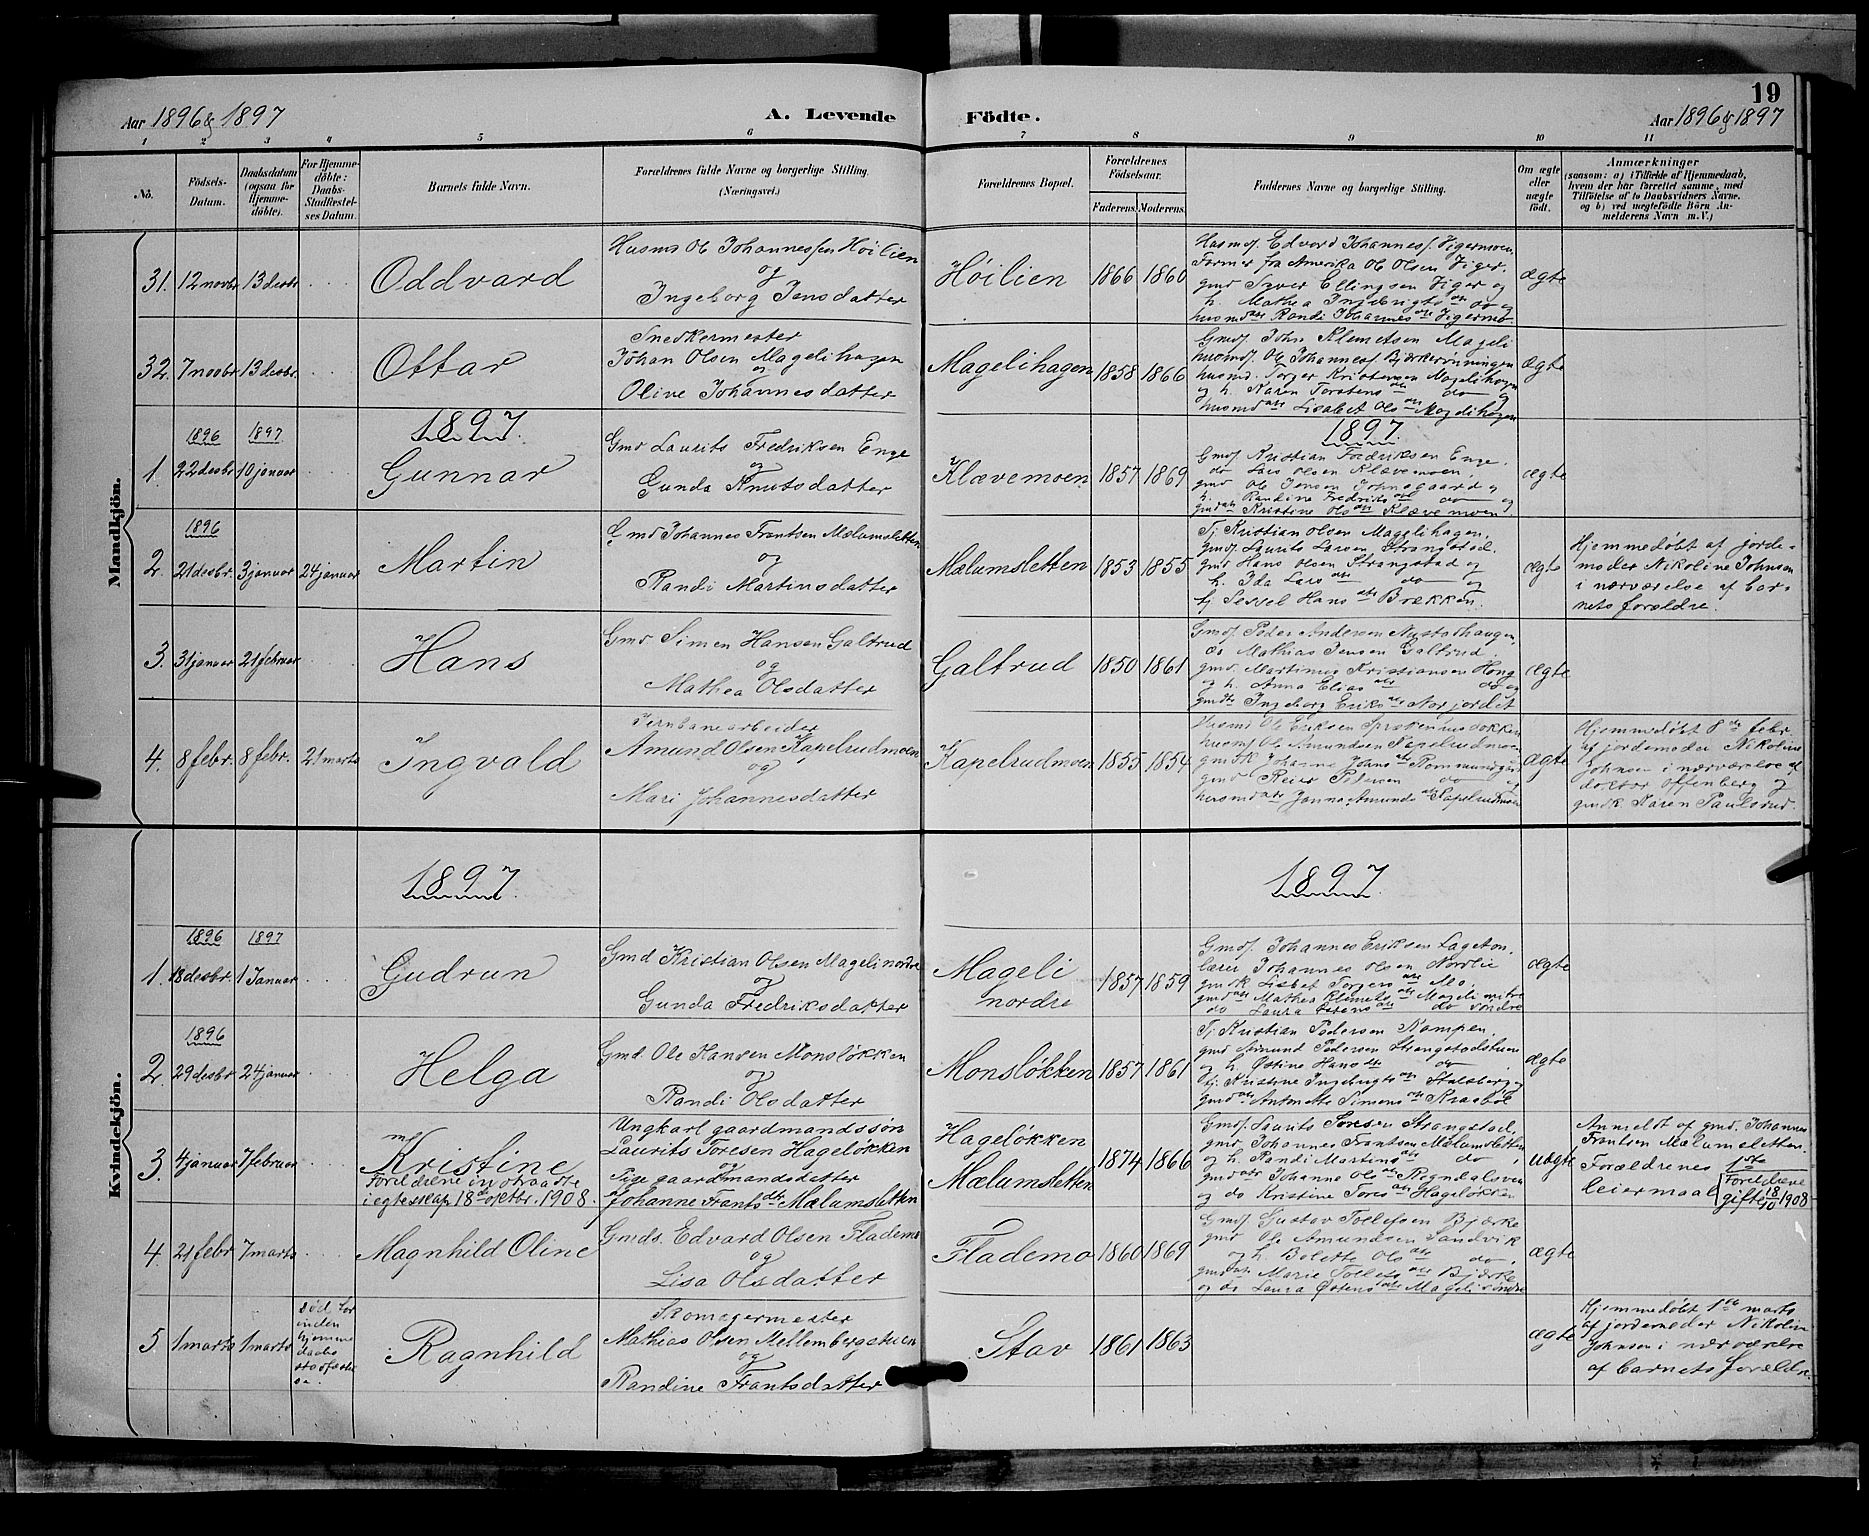 19
Aar 1896 & 1897
A. Levende
Födte.
Aar 1896 & 1897
1 2 3 4 5 6 7 8 9 10 11
No.
Födsels-
Datum.
Daabsdatum
(ogsaa for
Hjemme-
döbte).
For Hjemme-
döbte:
Daabs-
Stadfæstel-
ses Datum.
Barnets fulde Navn.
Forældrenes fulde Navne og borgerlige Stilling.
(Næringsvei.)
Forældrenes Bopæl.
Forældrenes
Födselsaar.
Faderens.
Moderens.
Faddernes Navne og borgerlige Stilling.
Om ægte
eller
uægte
födt.
Anmærkninger
(saasom: a) i Tilfælde af Hjemmedaab,
hvem der har forrettet samme, med
Tilföielse af to Daabsvidners Navne.
og b) ved uægtefödte Börn An-
melderens Navn m. V.)
Mandkjön.
31. 12 novbr. 13 desbr.
Oddvard
Husmd Ole Johannessen Höilien
og
Ingeborg Jensdatter
Höilien
1866 1860
Husmdf. Edvard Johannesf. Jigermoen
Farmer fra Amerika Ole Olsen Jiger,
gmd Syver Ellingsen Jiger og
h. Mathea Ingebrigtsdtr do og
husmddtr Randi Johannesdtr Jigermo
ægte
32. 7 novbr. 13 desbr.
Ottar
Snedkermester
Johan Olsen Magelihagen
og
Olive Johannesdatter
Magelihagen
1858 1866
Gmdf. John Klemetsen Mageli
husmdf. Ole Johannesf Bjerkerönningen
husmd. Torger Kristensen Magelihagen
og h. Karen Torstensdtr do og
husmddtr Lisabet Olsdtr Magelihagen
ægte
1897.
1897.
1896 1897
1. 22 desbr 10 januar
Gunnar
Gmd Laurits Fredriksen Enge
og
Gunda Knutsdatter
Klævemoen
1857 1869
Gmdf. Kristian Fredriksen Enge.
do Lars Olsen Klævemoen
gmd Ole Jensen Johnsgaard og
h. Randine Fredriksdtr do og
gmddtr Kristine Olsdtr Klævemoen
ægte
1896
2. 21 desbr. 3 januar 24 januar
Martin
Gmd Johannes Frantsen Mælumsletten
og
Randi Martinsdatter
Mælumsletten
1853 1855
Tj. Kristian Olsen Magelihagen,
gmdf. Laurits Larsen Strangstad.
gmd Hans Olsen Strangstad og
h. Ida Larsdtr do og
tj Sessel Hansdtr Brækken.
ægte
Hjemmedöbt af jorde-
moder Nikoline Johnsen
i nærværelse af bar-
nets forældre.
3. 31 januar 21 februar
Hans
Gmd Simen Hansen Galtrud
og
Mathea Olsdatter
Galtrud
1850 1861
Gmdf. Peder Andersen Nustadhaugen
do Mathias Jensen Galtrud.
gmd. Martinus Kristiansen Hong
og h. Anna Eliasdtr do og
gmdtr Ingeborg Eriksdtr Norjordet
ægte
4. 8 febr. 8 febr. 21 marts
Ingvald
Jernbanearbeider
Amund Olsen Kapelrudmoen
og
Mari Johannesdatter
Kapelrudmoen
1855 1854
Husmd Ole Eriksen
husmdf. Ole Amundsen Kapelrudmoen
gmdk Johanne Johnsdtr
gmd Reier Pedersen do og
husmddtr Jonna Amundsdtr Kapelrudmoen
ægte
Hjemmedöbt 8de febr
af jordemoder Nikoline
Johnsen i nærværelse af
doktor Offenberg og
gmdk Karen Paulsrud.
Kvindekjön.
1897.
1897.
1896 1897
1. 18 desbr. 1 Januar
Gudrun
Gmd Kristian Olsen Mageli nordre
og
Gunda Fredriksdatter
Mageli
nordre
1857 1859
Gmdf. Johannes Eriksen Lageton,
lærer Johannes Olsen Nordlie
gmdk Lisbet Torgersdtr Mo,
gmddtr Mathea Klemetsdtr Mageli
do Laura Östensdtr do söndre
ægte
1896
2. 29 desbr 24 januar
Helga
Gmd. Ole Hansen Monslökken
og
Randi Olsdatter
Monslökken
1857 1861
Tj. Kristian Pedersen Kampen.
gmd Amund Pedersen Strangstadstuen
og h. Östine Hansdtr do,
tj. Kristine Ingebrigtsdtr Stalsberg og
gmddtr Antonette Simensdtr Kraaböl
ægte
3. 4 januar 7 februar
Kristine
Foreldrene indtraadte
i egteskap 18de oktbr. 1908.
Ungkarl gaardmandssön
Laurits Toresen Hagelökken
og
Pige gaardmandsdatter
Johanne Frantsdtr Mælumsletten
Hagelökken
Mælumsletten
1874 1866
Gmdf. Laurits Toresen Strangstad,
gmd. Johannes Frantsen Mælumsletten
og h. Randi Martinsdtr do,
gmddtr Johanne Olsdtr Rogndalsven
og do Kristine Toresdtr Hagelökken
uægte
Anmeldt af gmd. Johannes
Frantsen Mælumsletten.
Forældrenes 1ste
leiermaal
Foreldrene
gifte 18/10 1908
4. 21 febr 7 marts
Magnhild Oline
Gmds. Edvard Olsen Flademo
og
Lisa Olsdatter
Flademo
1860 1869
Gmdf. Gustav Tollefsen Bjerke
gmd Ole Amundsen Sandvik
og h. Bolette Olsdtr do,
gmddtr Marie Tollefsdtr Bjerke
og do Laura Östensdtr Mageli söndre
ægte
5 1 marts 1 marts
död for
inden
hjemme
daabs
Ragnhild
Skomagermester
Mathias Olsen Mellembergstuen
og
Randine Frantsdatter
Stav
1861 1863
ægte
Hjemmedöbt 1ste marts
af jordemoder Nikoline
Johnsen i nærværelse
af barnets forældre.